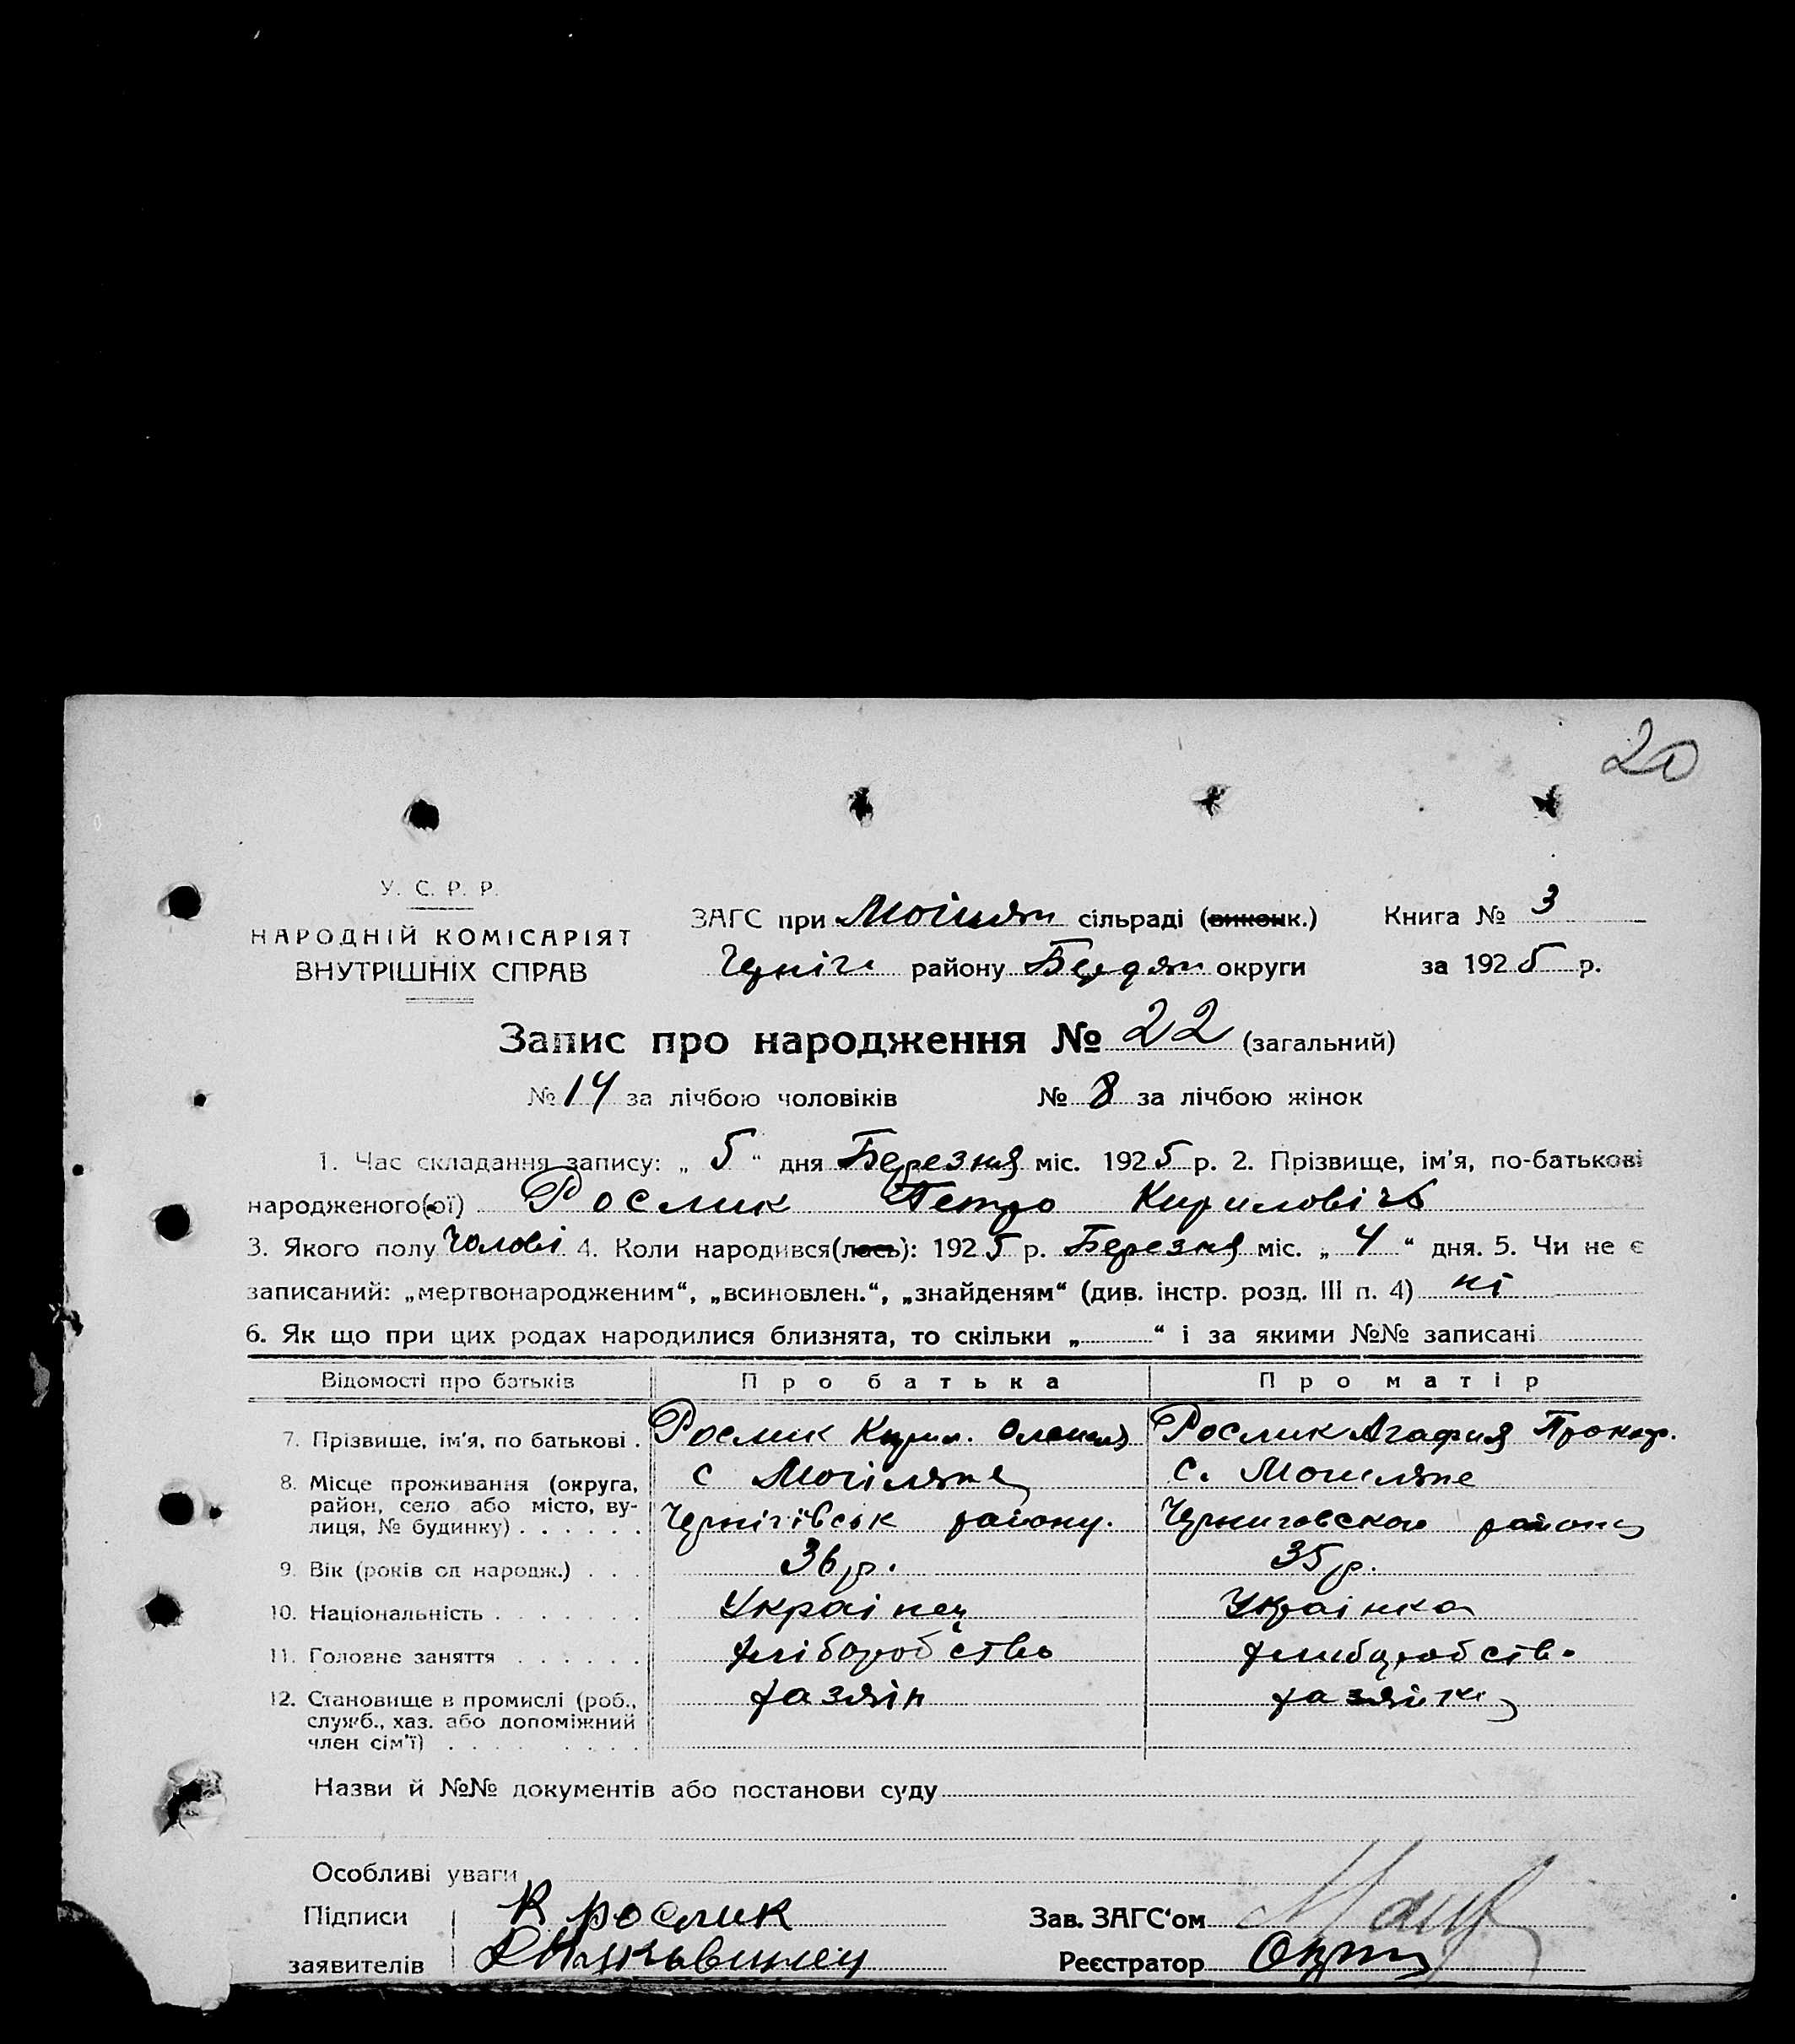 20
У. С. Р. Р.
НАРОДНІЙ КОМІСАРІЯТ
ВНУТРІШНІХ СПРАВ
ЗАГС при сільраді (виконк.) Книга № 3
Черніг району Бердян округи за 1925 р.
Запис про народження № 22 (загальний)
№ 14 за лічбою чоловіків № 8 за лічбою жінок
1. Час складання запису: „ 5 “ дня Березня міс. 1925 р. 2. Прізвище, ім'я, по-батькові
народженого(ої) Рослик Петро Кириловічь
3. Якого полу Чолові 4. Коли народився(лась): 1925 р. Березня міс. „ 4 “ дня. 5. Чи не є
записаний: „мертвонародженим“, „всиновлен.“, „знайденям“ (див. інстр. розд. III п. 4) ні
6. Як що при цих родах народилися близнята, то скільки „ “ і за якими №№ записані
Відомості про батьків Про батька Про матір
7. Прізвище, ім'я, по батькові . Рослик Кирил. Рослик Агафия Прокоф.
8. Місце проживання (округа, с Могіляне с. Могиляне
район, село або місто, ву-
лиця, № будинку) . . . . . . Чернігівськ району. Черниговского району
9. Вік (років од народж.) . . . 36 р. 35 р.
10. Національність . . . . . . . Українец Українка
11. Головне заняття . . . . . . хліборобство хлиборобство
12. Становище в промислі (роб., хазяін хазяйка
служб., хаз. або допоміжний
член сім'ї) . . . . . . . . .
Назви й №№ документів або постанови суду
Особливі уваги
Підписи К рослик Зав. ЗАГС'ом
заявителів Реєстратор